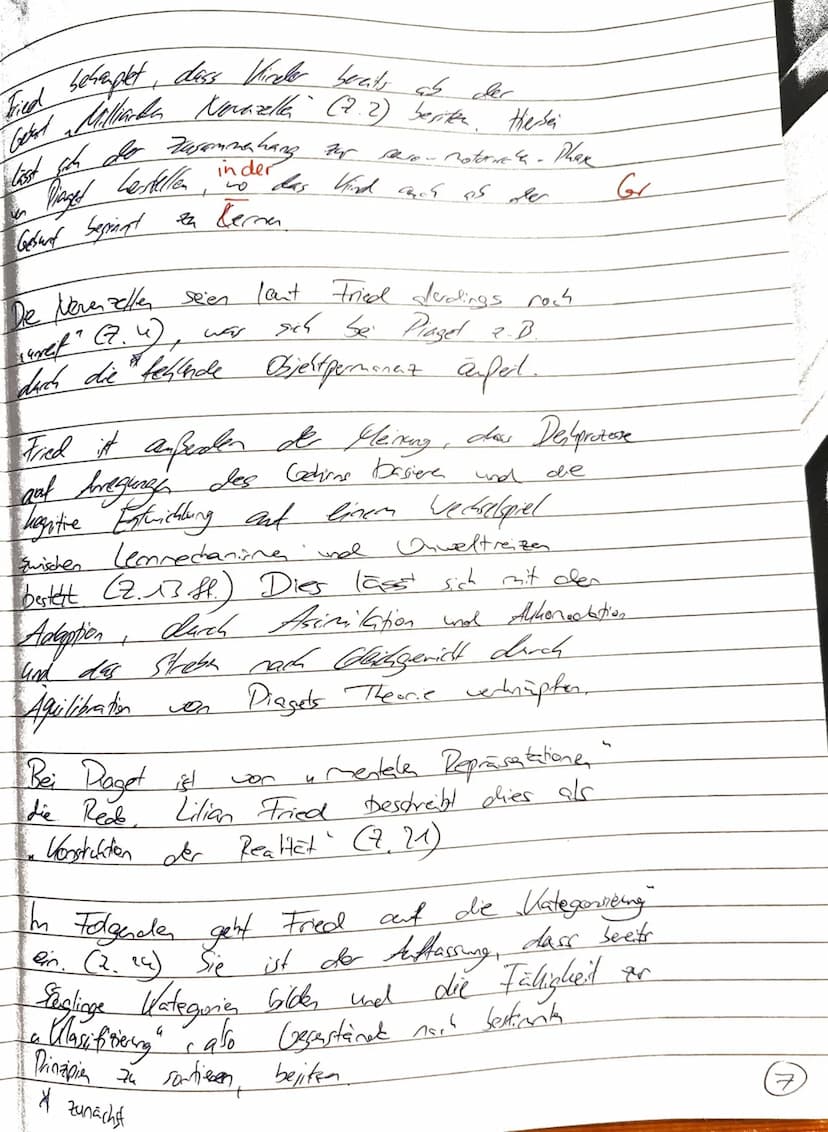 Fried behauptet, dass Kinder bereits ab der
Geburt „Milliarden Nervenzellen" (Z.2) besitzen. Hierbei
lässt sich der Zusammenhang zur senso-motorischen-Phase
in der
von Piaget herstellen, wo das Kind auch ab der Gr
Geburt beginnt zu lernen.
Die Nervenzellen seien laut Fried allerdings noch
„unreif" (Z.4), was sich bei Piaget z.B.
durch die * fehlende Objektpermanenz äußert.
Fried ist außerdem der Meinung, dass Denkprozesse
auf Anregungen des Gehirns basieren und die
kognitive Entwicklung auf einem Wechselspiel
zwischen Lernmechanismen und Umweltreizen
besteht. (Z.13 ff.) Dies lässt sich mit der
Adaption, durch Assimilation und Akkomodation
und das Streben nach Gleichgewicht durch
Äquilibration von Piagets Theorie verknüpfen.
Bei Piaget ist von „mentalen Repräsentationen"
die Rede. Lilian Fried beschreibt dies als
„Konstruktion der Realität" (Z.21)
Im Folgenden geht Fried auf die „Kategorisierung"
ein. (Z.24) Sie ist der Auffassung, dass bereits
Säuglinge Kategorien bilden und die Fähigkeit zur
„Klassifizierung", also Gegenstände nach bestimmten
Prinzipien zu sortieren, besitzen.
* zunächst
7